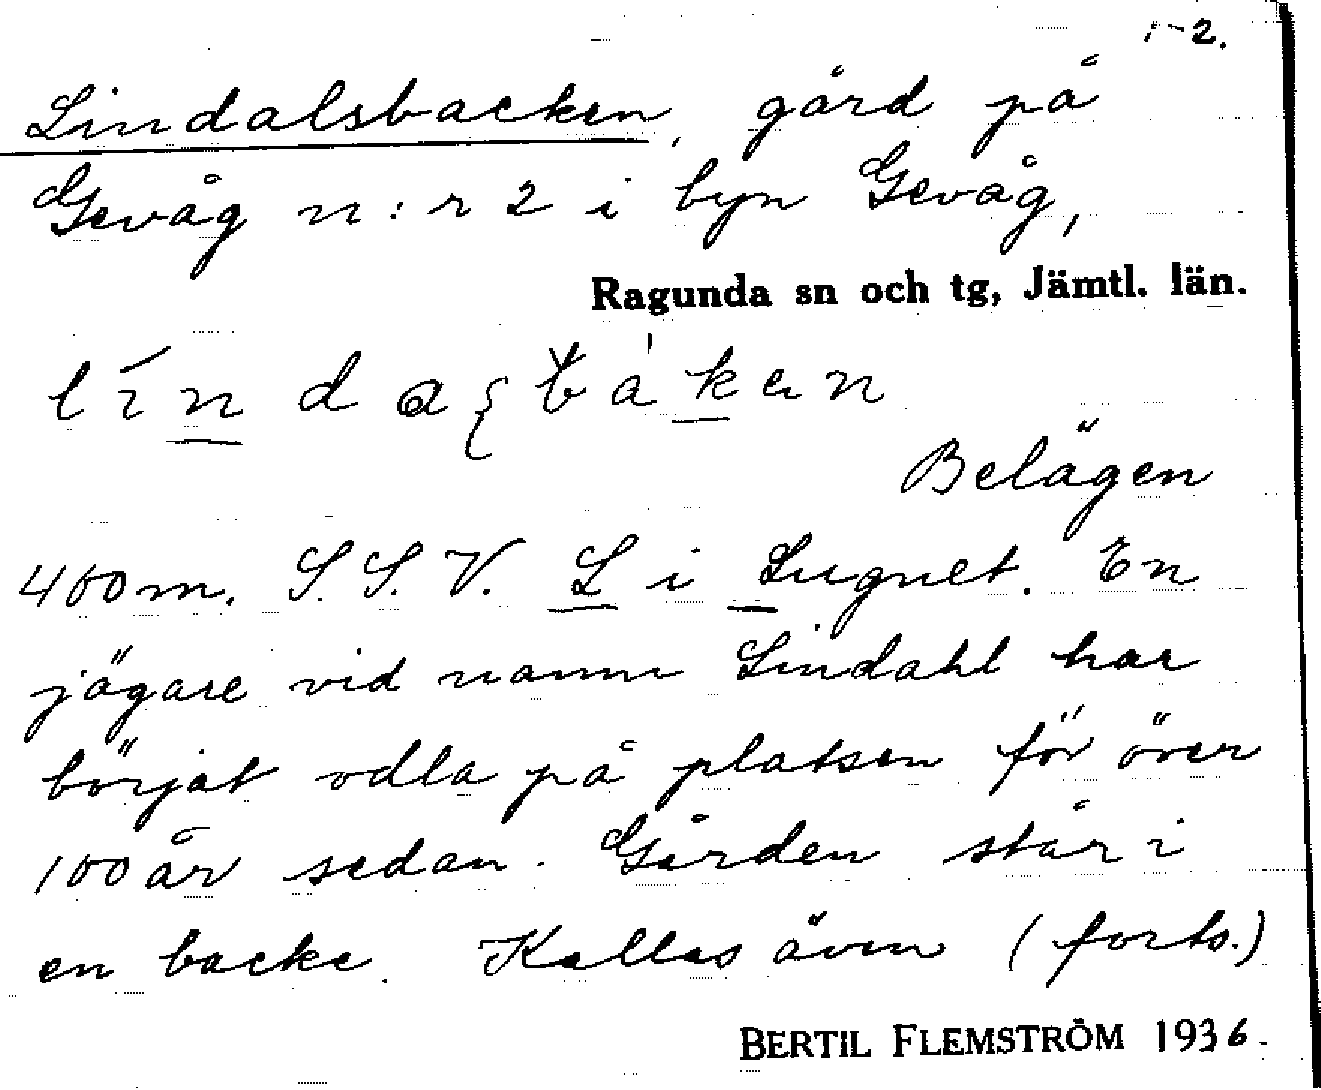 1-2.
Lindalsbacken, gård på
Gevåg n:r 2 i byn Gevåg,
Ragunda sn och tg, Jämtl. län.
Belägen
400m. S.S.V. L i Lugnet. En
jägare vid namn Lindahl har
börjat odla på platsen för över
100 år sedan. Gården står i
en backe. Kallas även (forts.)
BERTIL FLEMSTRÖM 1936.